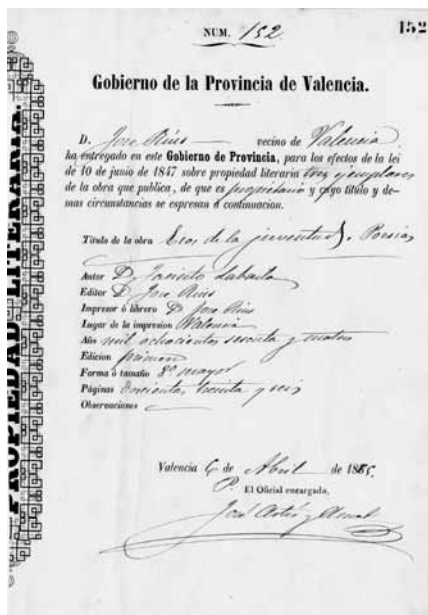 NUM. 152
152
Gobierno de la Provincia de Valencia.
D. Jose Rius vecino de Valencia
ha entregado en este Gobierno de Provincia, para los efectos de la ley
de 10 de junio de 1847 sobre propiedad literaria tres ejemplares
de la obra que publica, de que es propietario y cuyo título y de-
mas circunstancias se espresan á continuacion.
Título de la obra Ecos de la juventud. Poesías
Autor D. Jacinto Labaila
Editor D. Jose Rius
Impresor ó librero D. Jose Rius
Lugar de la impresion Valencia
Año mil ochocientos sesenta y cuatro
Edicion primera
Forma ó tamaño 8º mayor
Páginas doscientas treinta y seis
Observaciones
Valencia 6 de Abril de 1865.
El Oficial encargado,
José
PROPIEDAD LITERARIA.